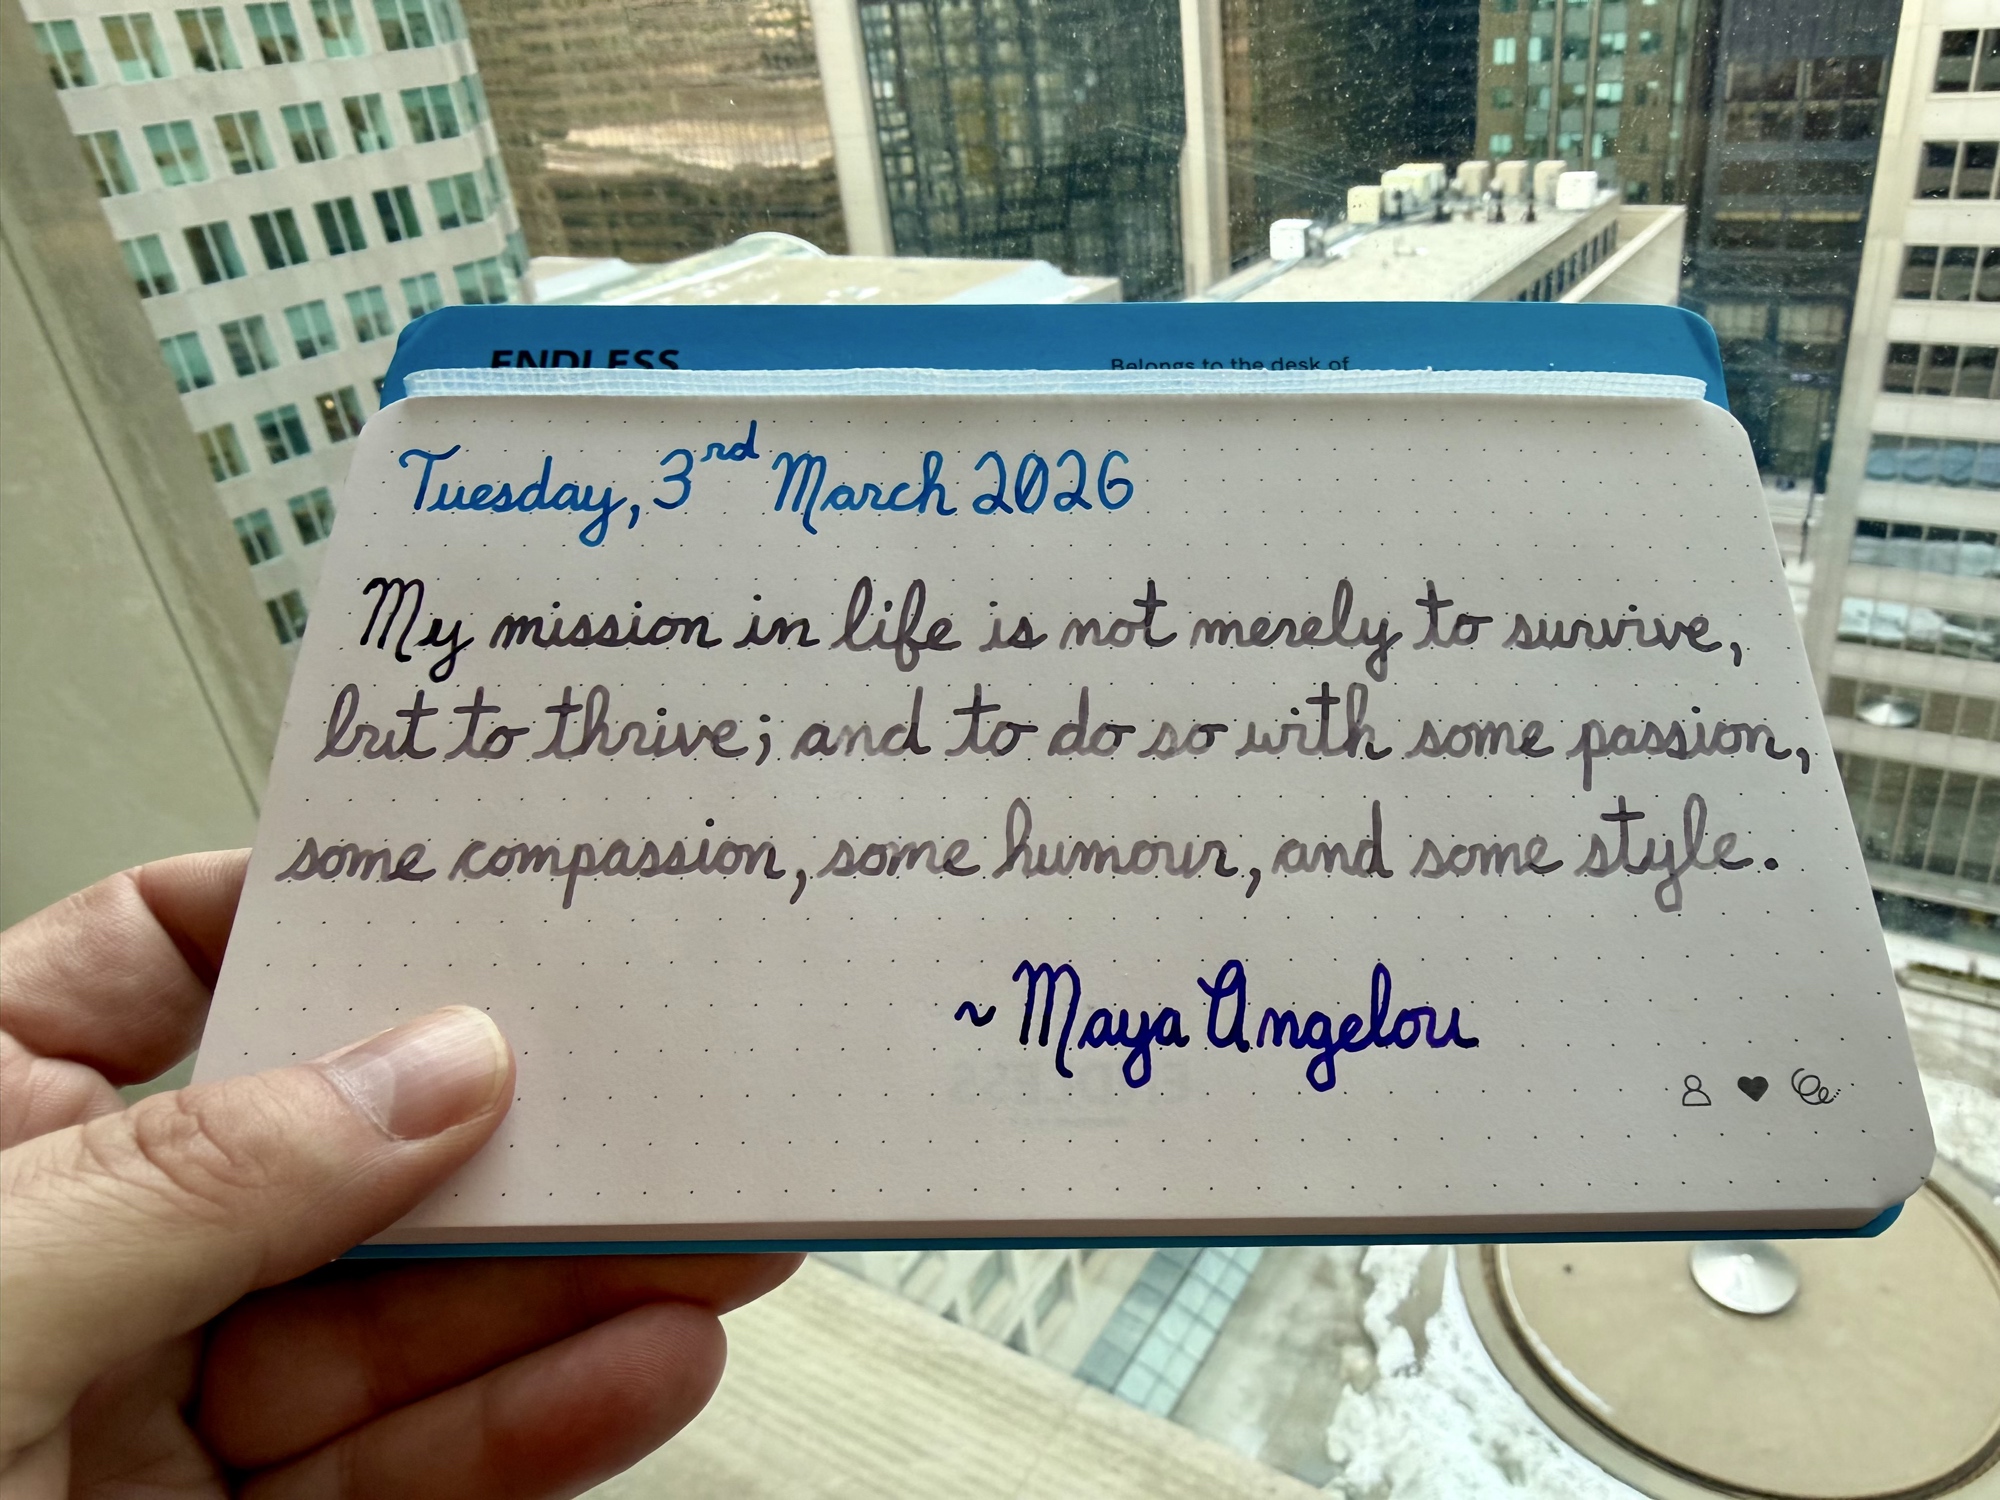 ENDLESS
Belongs to the desk of
Tuesday, 3rd March 2026
My mission in life is not merely to survive,
but to thrive; and to do so with some passion,
some compassion, some humour, and some style.
~ Maya Angelou